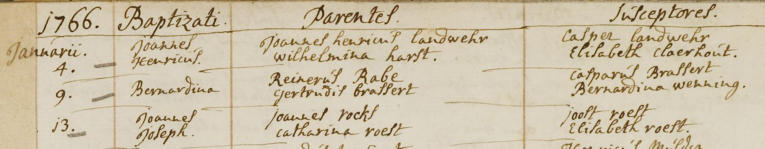 1766. Baptizati. Parentes. Susceptores.
Januarii. Joannes Joannes henricus landwehr Casper landwehr
4. Henricus. wilhelmina harst. Elisabeth claerhout.
Reinerus Rabe Casparus Brassert
9. Bernardina Gertrudis brassert Bernardina wenning.
Joannes Joannes rocks joost roest
13. Joseph. catharina roest Elisabeth roest.